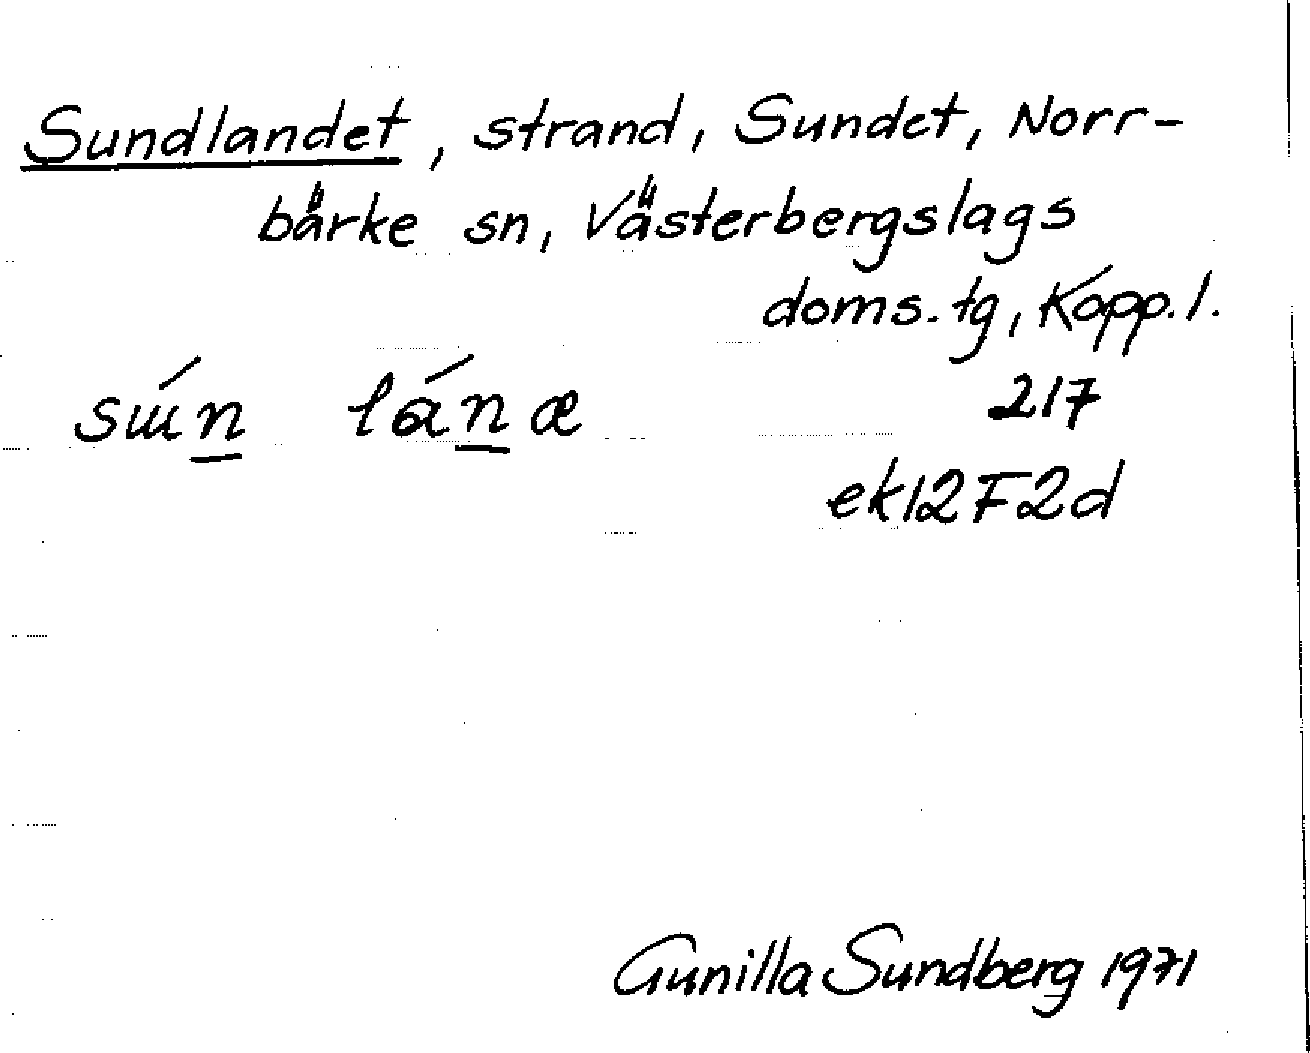 Sundlandet, strand, Sundet, Norr-
bärke sn, Västerbergslags
doms. tg, Kopp. l.
sɯ́n lánæ 217
ek12F2d
Gunilla Sundberg 1971